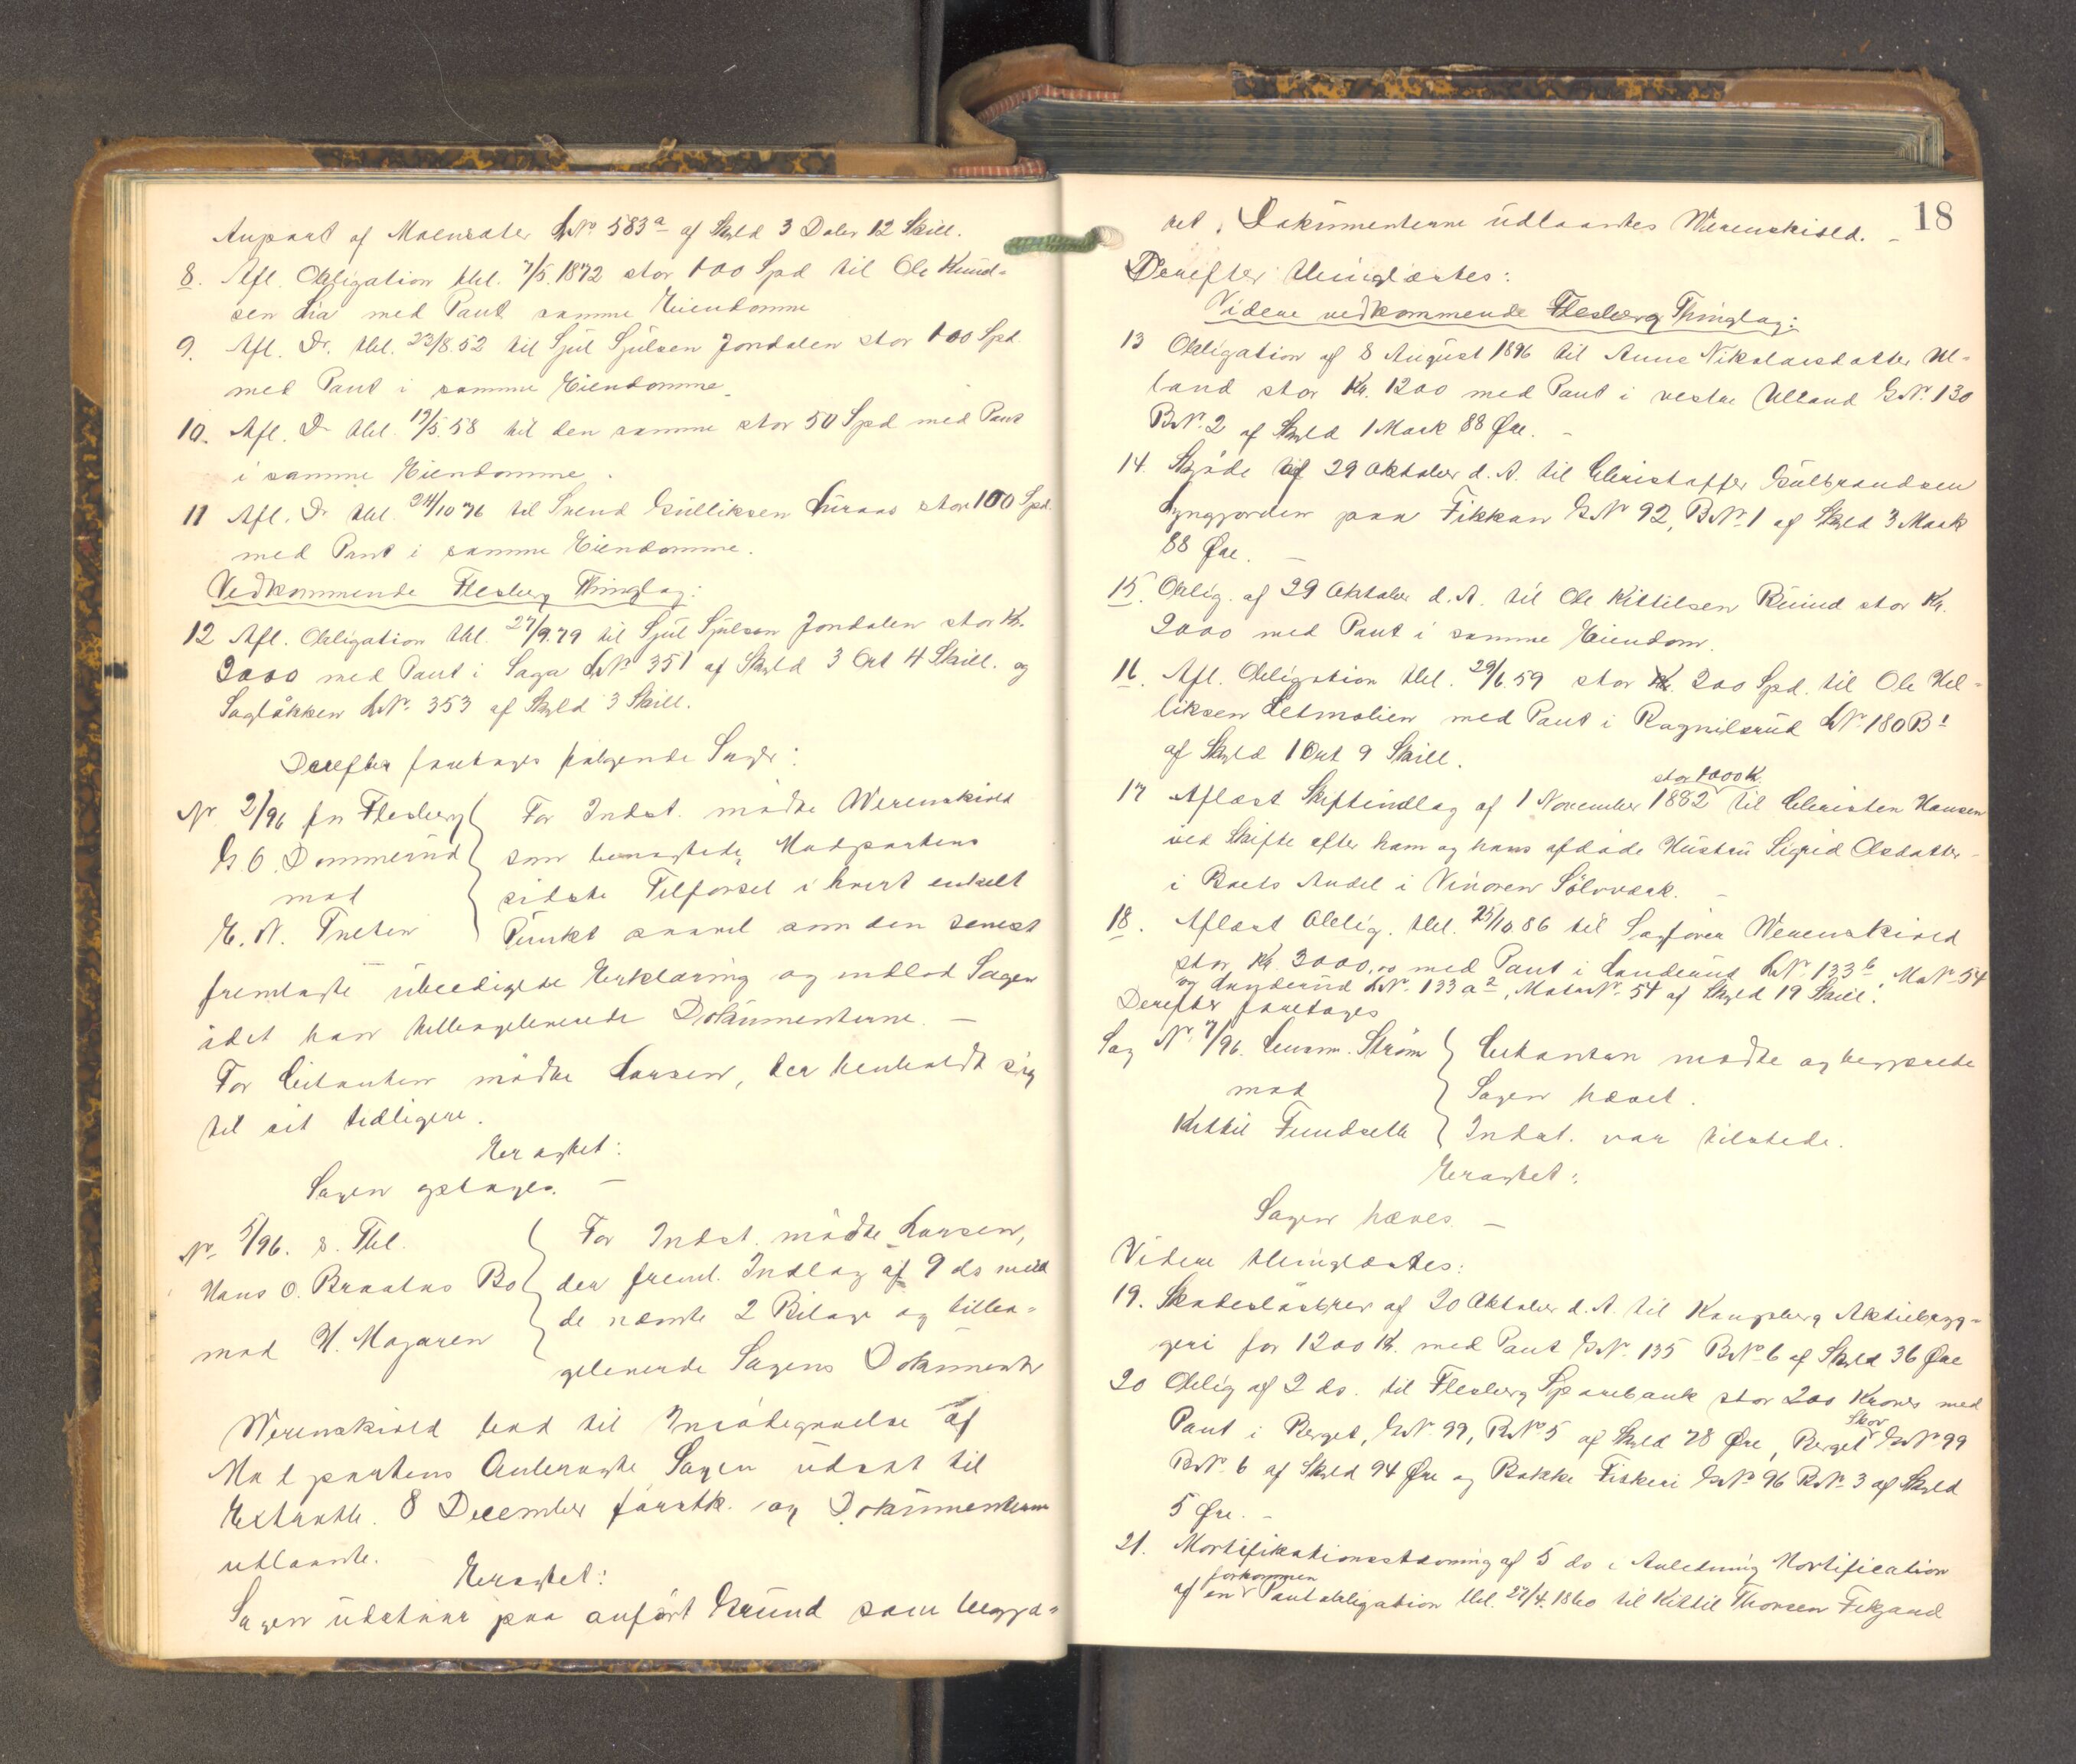 Anpart af Moensæter LNr. 583a af Skyld 3 Daler 12 Skill.
8. Afl. Obligation thl. 7/5.1872 stor 100 Spd til Ole Knud-
sen Lia med Pant samme Eiendomme
9. Afl. Do. thl. 23/8.52 til Sjul Sjulsen Jondalen stor 100 Spd.
med Pant i samme Eiendomme.
10. Afl. Do thl. 19/5.58 til den samme stor 50 Spd med Pant
i samme Eiendomme.
11 Afl. Do thl. 24/10 76 til Svend Gulliksen Luraas stor 100 Spd.
med Pant i samme Eiendomme.
Vedkommende Flesberg Thinglag:
12 Afl. Obligation thl. 27/9.79 til Sjul Sjulsen Jondalen stor Kr.
2000 med Pant i Saga LNr 351 af Skyld 3 Ort 4 Skill. og
Sagløkken LNr. 353 af Skyld 3 Skill.
Derefter foretages følgende Sager:
Nr 2/96 fra Flesberg
G. O. Dommerud
mod
E. N. Tveten
For Indst. mødte Werenskiold
som benægtede Modpartens
sidste Tilførsel i hvert enkelt
Punkt saavel som den senest
fremlagte ubeedigede Erklæring og indlod Sagen
idet han tilbageleverede Dokumenterne. –
For Citanten mødte Larsen, der henholdt sig
til sit tidligere.
Eragtet:
Sagen optages. –
Nr 5/96. s. Thl.
Hans O. Braatas Bo
mod H. Mogaren
For Indst. mødte Larsen,
der freml. Indlæg af 9 ds med
de nævnte 2 Bilage og tilba-
geleverede Sagens Dokumenter
Werenskiold bad til Imødegaaelse af
Modpartens Anbragte Sagen udsat til
Extrathl. 8 December førstk. og Dokumenterne
udlaante.
Eragtet:
Sagen udstaar paa anført Grund som begjæ-
18
ret. Dokumenterne udlaantes Werenskiold. –
Derefter thinglæstes:
Videre vedkommende Flesberg Thinglag:
13 Obligation af 8 August 1896 til Anne Nikolaisdatter Ul-
land stor Kr. 1200 med Pant i vestre Ulland GNr. 130
BNr. 2 af Skyld 1 Mark 88 Øre. –
14. Skjøde af 29 Oktober d. A. til Christoffer Gulbrandsen
Lyngjorden paa Fikkan GNr 92, BNr. 1 af Skyld 3 Mark
88 Øre. –
15. Oblig. af 29 Oktober d. A. til Ole Kittilsen Ruud stor Kr.
2000 med Pant i samme Eiendom.
16. Afl. Obligation thl. 29/6.59 stor 200 Spd. til Ole Hel-
liksen Letmolien med Pant i Ragnilsrud LNr. 180 B1
af Skyld 1 Ort 9 Skill.
17 Aflæst Skifteudlæg af 1 November 1882 stor 1000 K. til Christen Hansen
ved Skifte efter ham og hans afdøde Hustru Sigrid Olsdatter
i Boets Andel i Vinoren Sølvværk. –
18. Aflæst Oblig. thl. 25/10 86 til Sagfører Werenskiold
stor Kr. 3000,00 med Pant i Landerud LNr. 133b, MaNr 54
og LNr. 133 a2, MatrNr. 54 af Skyld 19 Skill.
Derefter foretages
Sag Nr. 7/96. Lensm. Strøm
mod
Kittil Fundsett
Citanten mødte og begjærede
Sagen hævet.
Indst. var tilstede.
Eragtet:
Sagen hæves. –
Videre thinglæstes:
19. Skadesløsbrev af 20 Oktober d. A. til Kongsberg Aktiebryg-
geri for 1200 K. med Pant GNr. 135 BNr 6 af Skyld 36 Øre
20 Oblig af 2 ds. til Flesberg Sparebank stor 200 Kroner med
Pant i Berget, GNr. 99, BNr 5 af Skyld 78 Øre, Berget Skov GNr 99
BNr. 6 af Skyld 94 Øre og Bakke Fiskeri GNr 96 BNr. 3 af Skyld
5 Øre. –
21. Mortifikationsstævning af 5 ds i Anledning Mortification
af en forkommen Pantobligation thl. 27/4. 1860 til Kittil Thorsen Fekjand